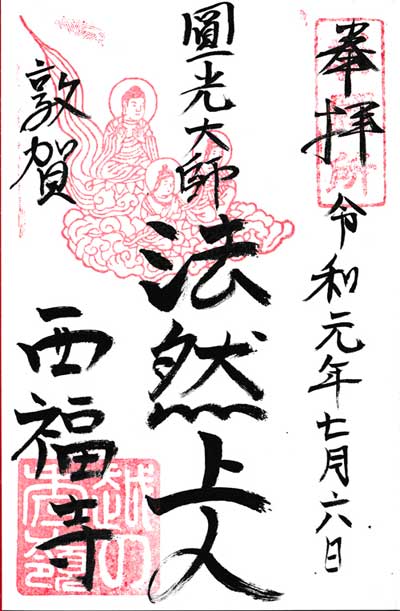 奉拝
令和元年七月六日
圓光大師
法然上人
敦賀
西福寺